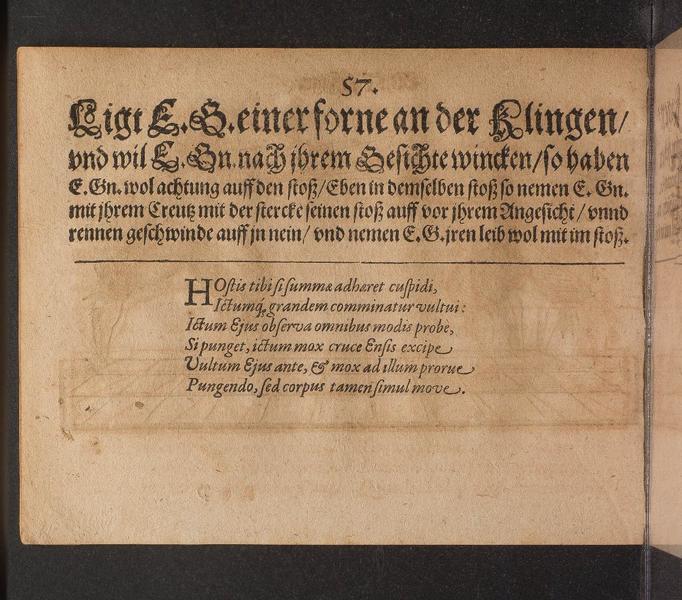 57.
Ligt E. G. einer forne an der Klingen/
vnd wil E. Gn. nach jhrem Gesichte wincken/so haben
E. Gn. wol achtung auff den stoß/Eben in demselben stoß so nemen E. Gn.
mit jhrem Creutz mit der stercke seinen stoß auff vor jhrem Angesicht/vnnd
rennen geschwinde auff jn nein/ vnd nemen E. G. jren leib wol mit im stoß.
HOstis tibi si summæ adhæret cuspidi,
Ictumq́; grandem comminatur vultui:
Ictum Ejus observa omnibus modis probè,
Si punget, ictum mox cruce Ensis excipe
Vultum Ejus ante, & mox ad illum prorue
Pungendo, sed corpus tamen simul move.